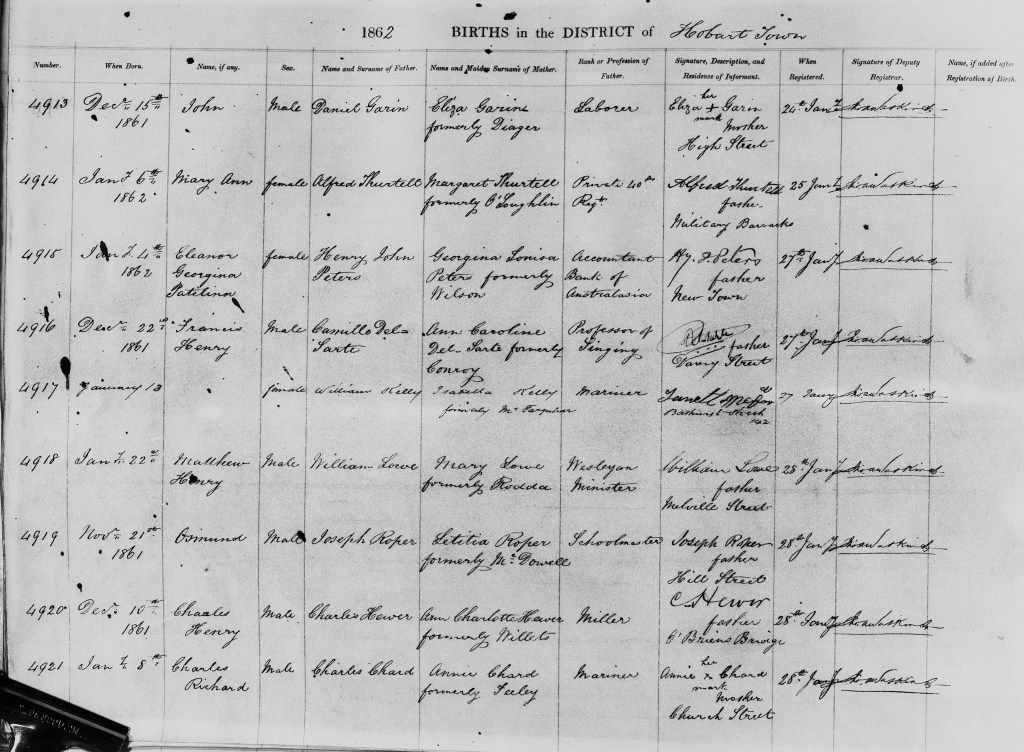 1862 BIRTHS in the DISTRICT of Hobart Town
Number. When Born. Name, if any. Sex. Name and Surname of Father. Name and Maiden Surname of Mother. Rank or Profession of Father. Signature, Description, and Residence of Informant. When Registered. Signature of Deputy Registrar. Name, if added after Registration of Birth.
4913 Decr 15th John Male Daniel Garin Eliza Garin Laborer Eliza her + Garin 24th Jany
1861 formerly Diager mark Mother
High Street
4914 Jany 6th Mary Ann female Alfred Thurtell Margaret Thurtell Private 40th Alfred Thurtell 25 Jany
1862 formerly O'Loughlin Regt. father
Military Barracks
4915 Jany 4th Eleanor female Henry John Georgina Louisa Accountant Hy. J Peters 27th Jany
1862 Georgina Peters Peter formerly Bank of father
Wilson Australasia New Town
4916 Decr 22nd Francis Male Camillo Del= Ann Caroline Professor of father 27th Jany
1861 Henry Sarte Del-Sarte formerly Singing Davey Street
Conroy
4917 January 13 female William Kelly Isabella Kelly Mariner 27 Jany
formerly Mc Farquhar Bathurst Street
142
4918 Jany 22nd Matthew Male William Lowe Mary Lowe Wesleyan William Lowe 28th Jany
Henry formerly Rodda Minister father
Melville Street
4919 Novr 21st Osmund Male Joseph Roper Letitia Roper Schoolmaster Joseph Roper 28th Jany
1861 formerly McDowell father
Hill Street
4920 Decr 10th Chaales Male Charles Hewer Ann Charlotte Hewer Miller C Hewer 28th Jany
1861 Henry formerly Willets father
O'Briens Bridge
4921 Jany 8th Charles Male Charles Chard Annie Chard Mariner Annie her x Chard 28th Jany
Richard formerly Seeley mark Mother
Church Street